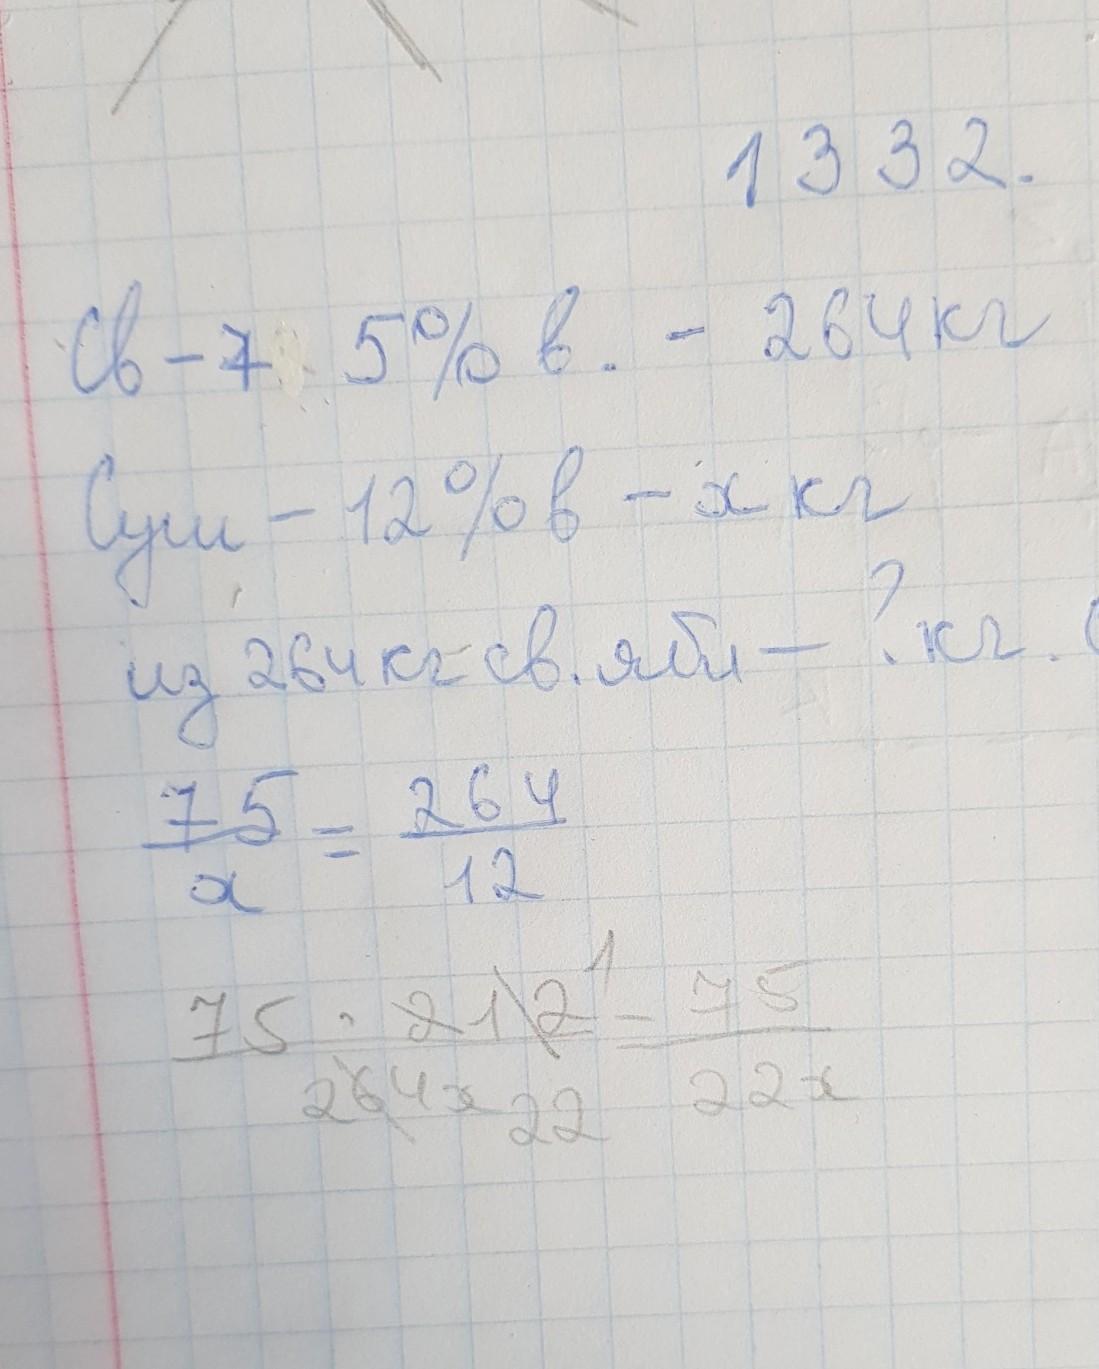 1332.
Св - 7 5% в. - 264 кг
Суш - 12% в - х кг
из 264 кг св. ябл - ? кг. (
75/х = 264/12
75 · 212 1 - 75
264х 22 22х